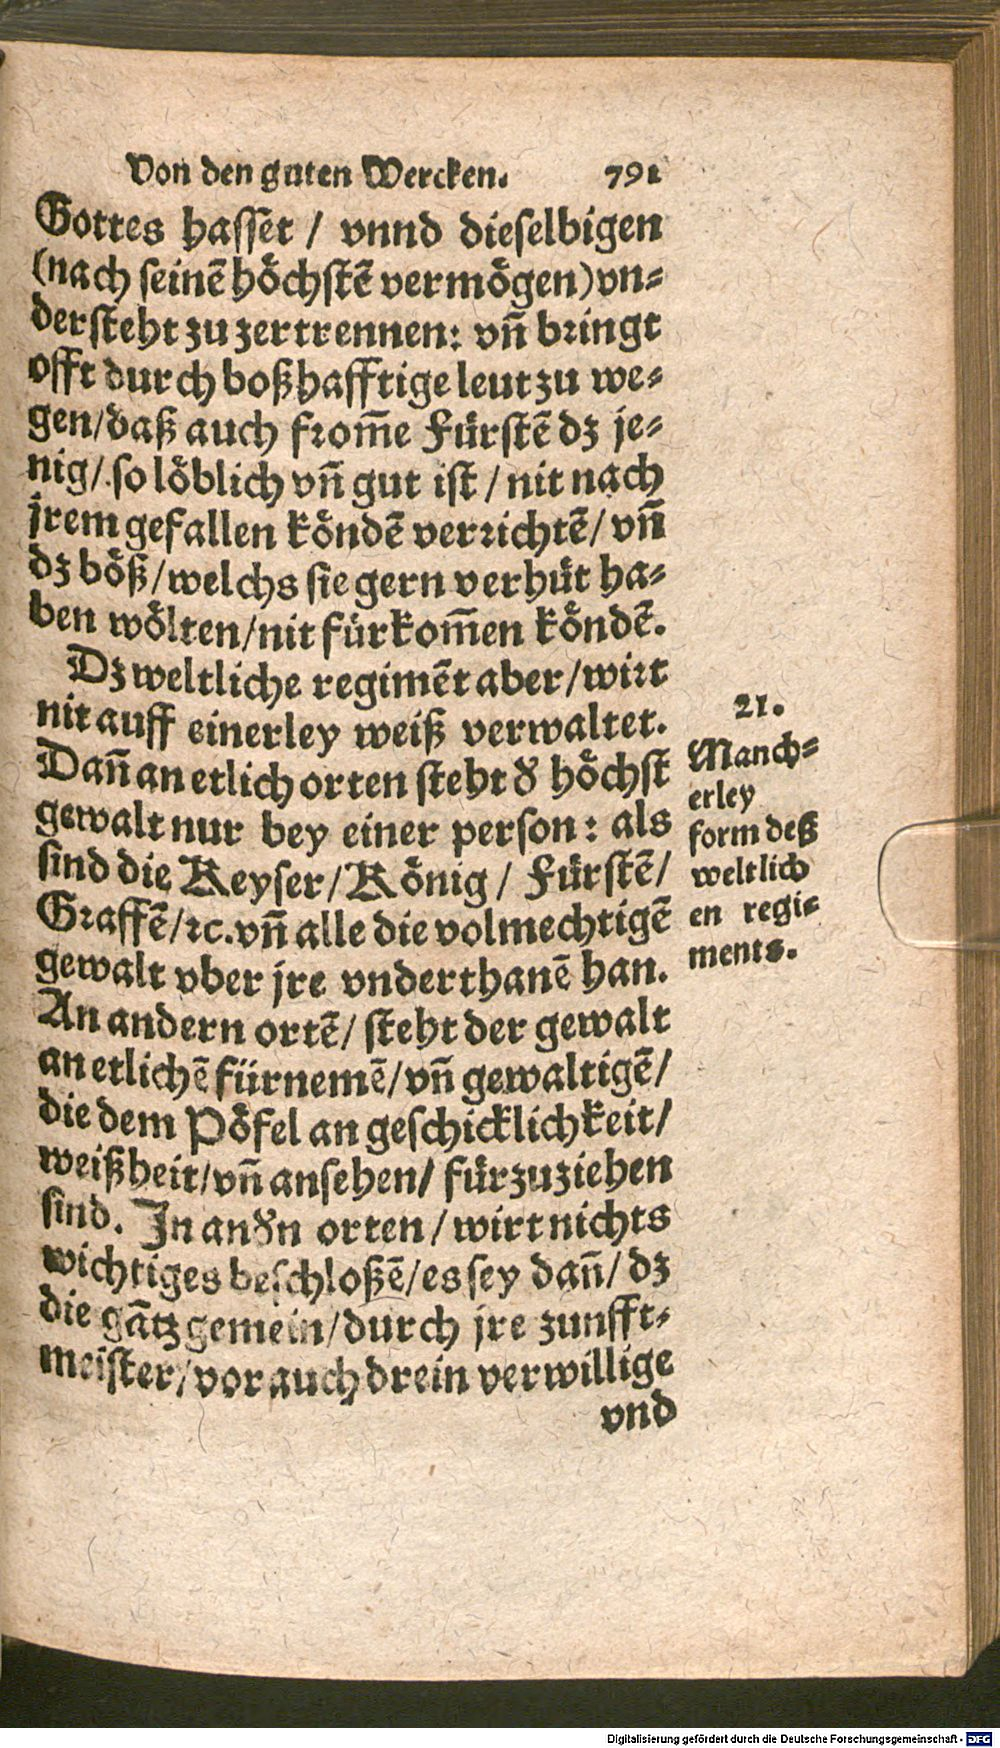 Von den guten Wercken. 791
Gottes hasset / vnnd dieselbigen
(nach seinē höchstē vermögen) vn-
dersteht zu zertrennen: vn̄ bringt
offt durch boßhafftige leut zu we-
gen/daß auch from̄e Fürstē dz je-
nig/ so löblich vn̄ gut ist / nit nach
jrem gefallen köndē verrichtē/ vn̄
dz böß/welchs sie gern verhüt ha-
ben wölten/nit fürkom̄en köndē.
Dz weltliche regimēt aber/wirt
nit auff einerley weiß verwaltet.
Dan̄ an etlich orten steht ď höchst
gewalt nur bey einer person: als
sind die Keyser/König/ Fürstē/
Graffē/ꝛc.vn̄ alle die volmechtigē
gewalt vber jre vnderthanē han.
An andern ortē/ steht der gewalt
an etlichē fürnemē/vn̄ gewaltigē/
die dem Pöfel an geschicklichkeit/
weißheit/vn̄ ansehen/ fürzuziehen
sind. In anďn orten/ wirt nichts
wichtiges beschloßē/es sey dan̄/ dz
die gātz gemein/durch jre zunfft-
meister/vor auch drein verwillige
vnd
21.
Manch-
erley
form deß
weltlich
en regi-
ments.
Digitalisierung gefördert durch die Deutsche Forschungsgemeinschaft - DFG